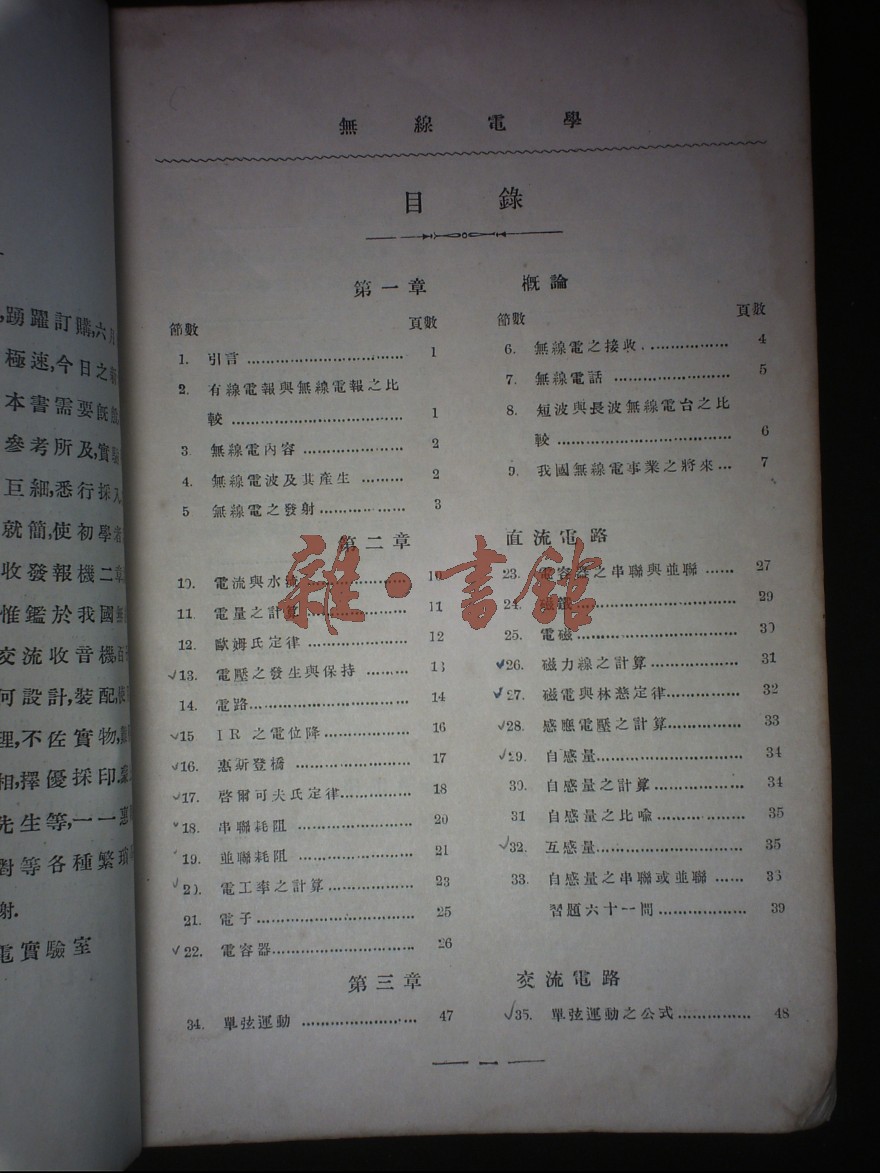 無線電學
目錄
第一章 概論
節數 頁數
1. 引言 1
2. 有線電報與無線電報之比
較 1
3 無線電內容 2
4. 無線電波及其產生 2
5 無線電之發射 3
節數 頁數
6. 無線電之接收 4
7. 無線電話 5
8. 短波與長波無線電台之比
較 6
9. 我國無線電事業之將來 7
第二章 直流電路
10. 電流與水流 10
11. 電量之計算 11
12. 歐姆氏定律 12
13. 電壓之發生與保持 13
14. 電路 14
15 IR之電位降 16
16. 惠斯登橋 17
17. 啓爾可夫氏定律 18
18. 串聯耗阻 20
19. 並聯耗阻 21
20. 電工率之計算 23
21. 電子 25
22. 電容器 26
23. 電容器之串聯與並聯 27
24. 磁鐵 29
25. 電磁 30
26. 磁力線之計算 31
27. 磁電與林慈定律 32
28. 感應電壓之計算 33
29. 自感量 34
30. 自感量之計算 34
31 自感量之比喻 35
32. 互感量 35
33. 自感量之串聯或並聯 36
習題六十一問 39
第三章 交流電路
34. 單弦運動 47
35. 單弦運動之公式 48
一
雜·書館
,踴躍訂購,六
極速,今日之
本書需要旣
參考所及,實
巨細,悉行採入
就簡,使初學者
收發報機二章
惟鑑於我國無
交流收音機,
何設計,裝配,
理,不佐實物,
相,擇優採印,
先生等,一一惠
對等各種繁瑣
射.
電實驗室